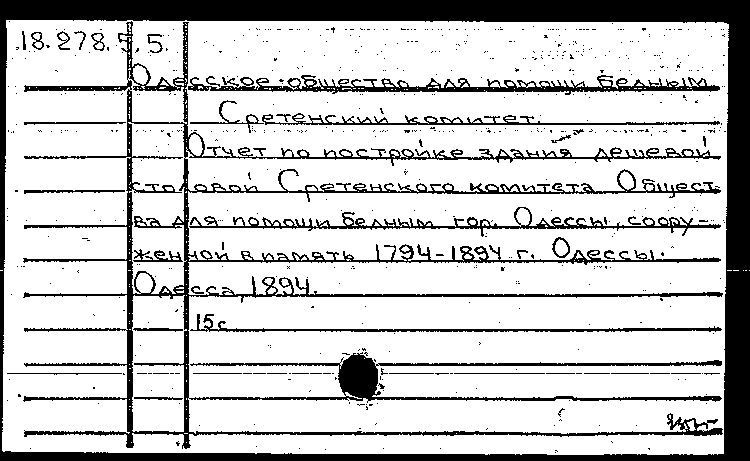 18.278.5.5.
Одесское общество для помощи бедным
Сретенский комитет.
Отчет по постройке здания дешевой
столовой Сретенского комитета Общест
ва для помощи бедным гор. Одессы, соору-
женной в память 1794-1894 г. Одессы.
Одесса, 1894.
15с